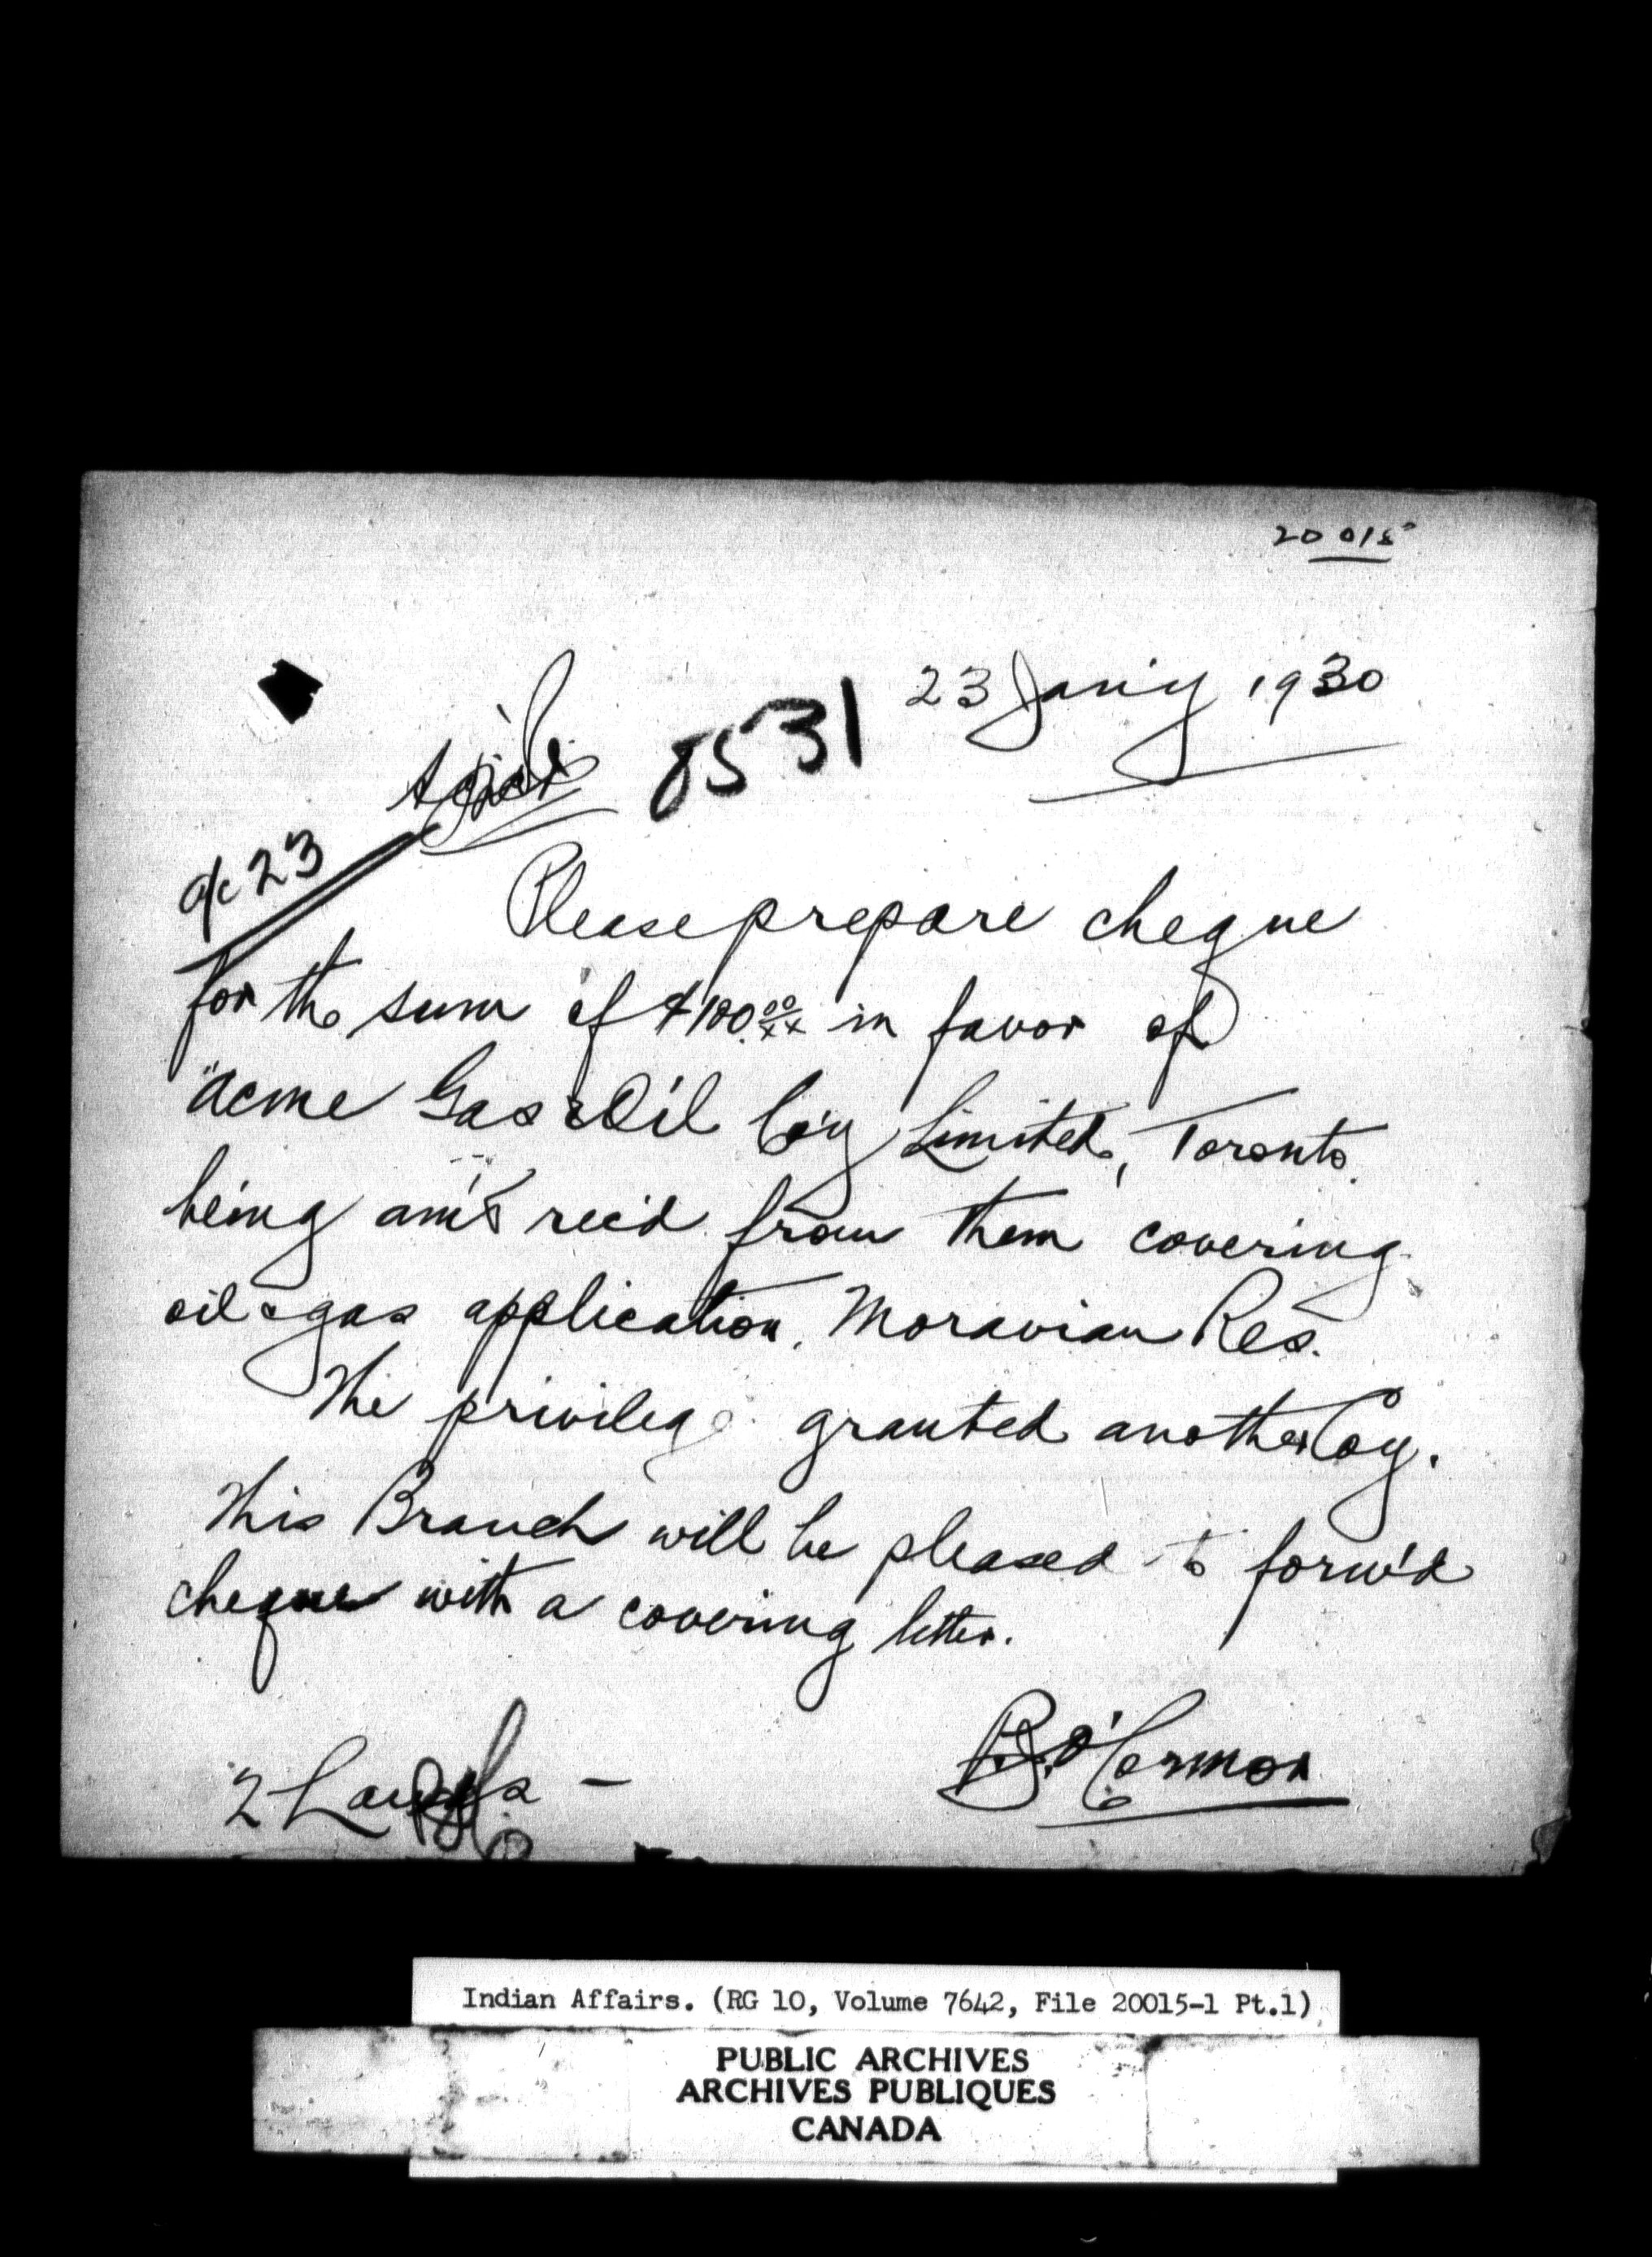 20 015
23 Jan'y 1930
8531
a/c 23
Please prepare cheque
for the sum of $100.00/xx in favor of
"Acme Gas & Oil Co'y Limited, Toronto.
being am't rec'd from them covering
oil & gas application, Moravian Res.
The privilege granted another Coy.
This Branch will be pleased to forw'd
cheque with a covering letter.
O'Connor
Indian Affairs. (RG 10, Volume 7642, File 20015-1 Pt.1)
PUBLIC ARCHIVES
ARCHIVES PUBLIQUES
CANADA